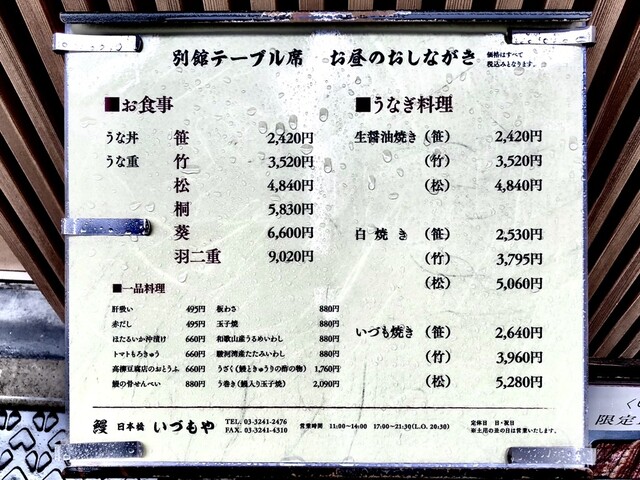 別館テーブル席 お昼のおしながき 価格はすべて
税込みとなります。
■お食事
うな丼 笹 2,420円
うな重 竹 3,520円
松 4,840円
桐 5,830円
葵 6,600円
羽二重 9,020円
■うなぎ料理
生醤油焼き (笹) 2,420円
(竹) 3,520円
(松) 4,840円
白焼き (笹) 2,530円
(竹) 3,795円
(松) 5,060円
いづも焼き (笹) 2,640円
(竹) 3,960円
(松) 5,280円
■一品料理
肝吸い 495円
赤だし 495円
ほたるいか沖漬け 660円
トマトもろきゅう 660円
高柳豆腐店のおとうふ 660円
鰻の骨せんべい 880円
板わさ 880円
玉子焼 880円
和歌山産うるめいわし 880円
駿河湾産たたみいわし 880円
うざく(鰻ときゅうりの酢の物) 1,760円
う巻き(鰻入り玉子焼) 2,090円
鰻 日本橋 いづもや
TEL. 03-3241-2476
FAX. 03-3241-4310
営業時間 11:00〜14:00 17:00〜21:30(L.O. 20:30)
定休日 日・祝日
※土用の丑の日は営業いたします。
限定